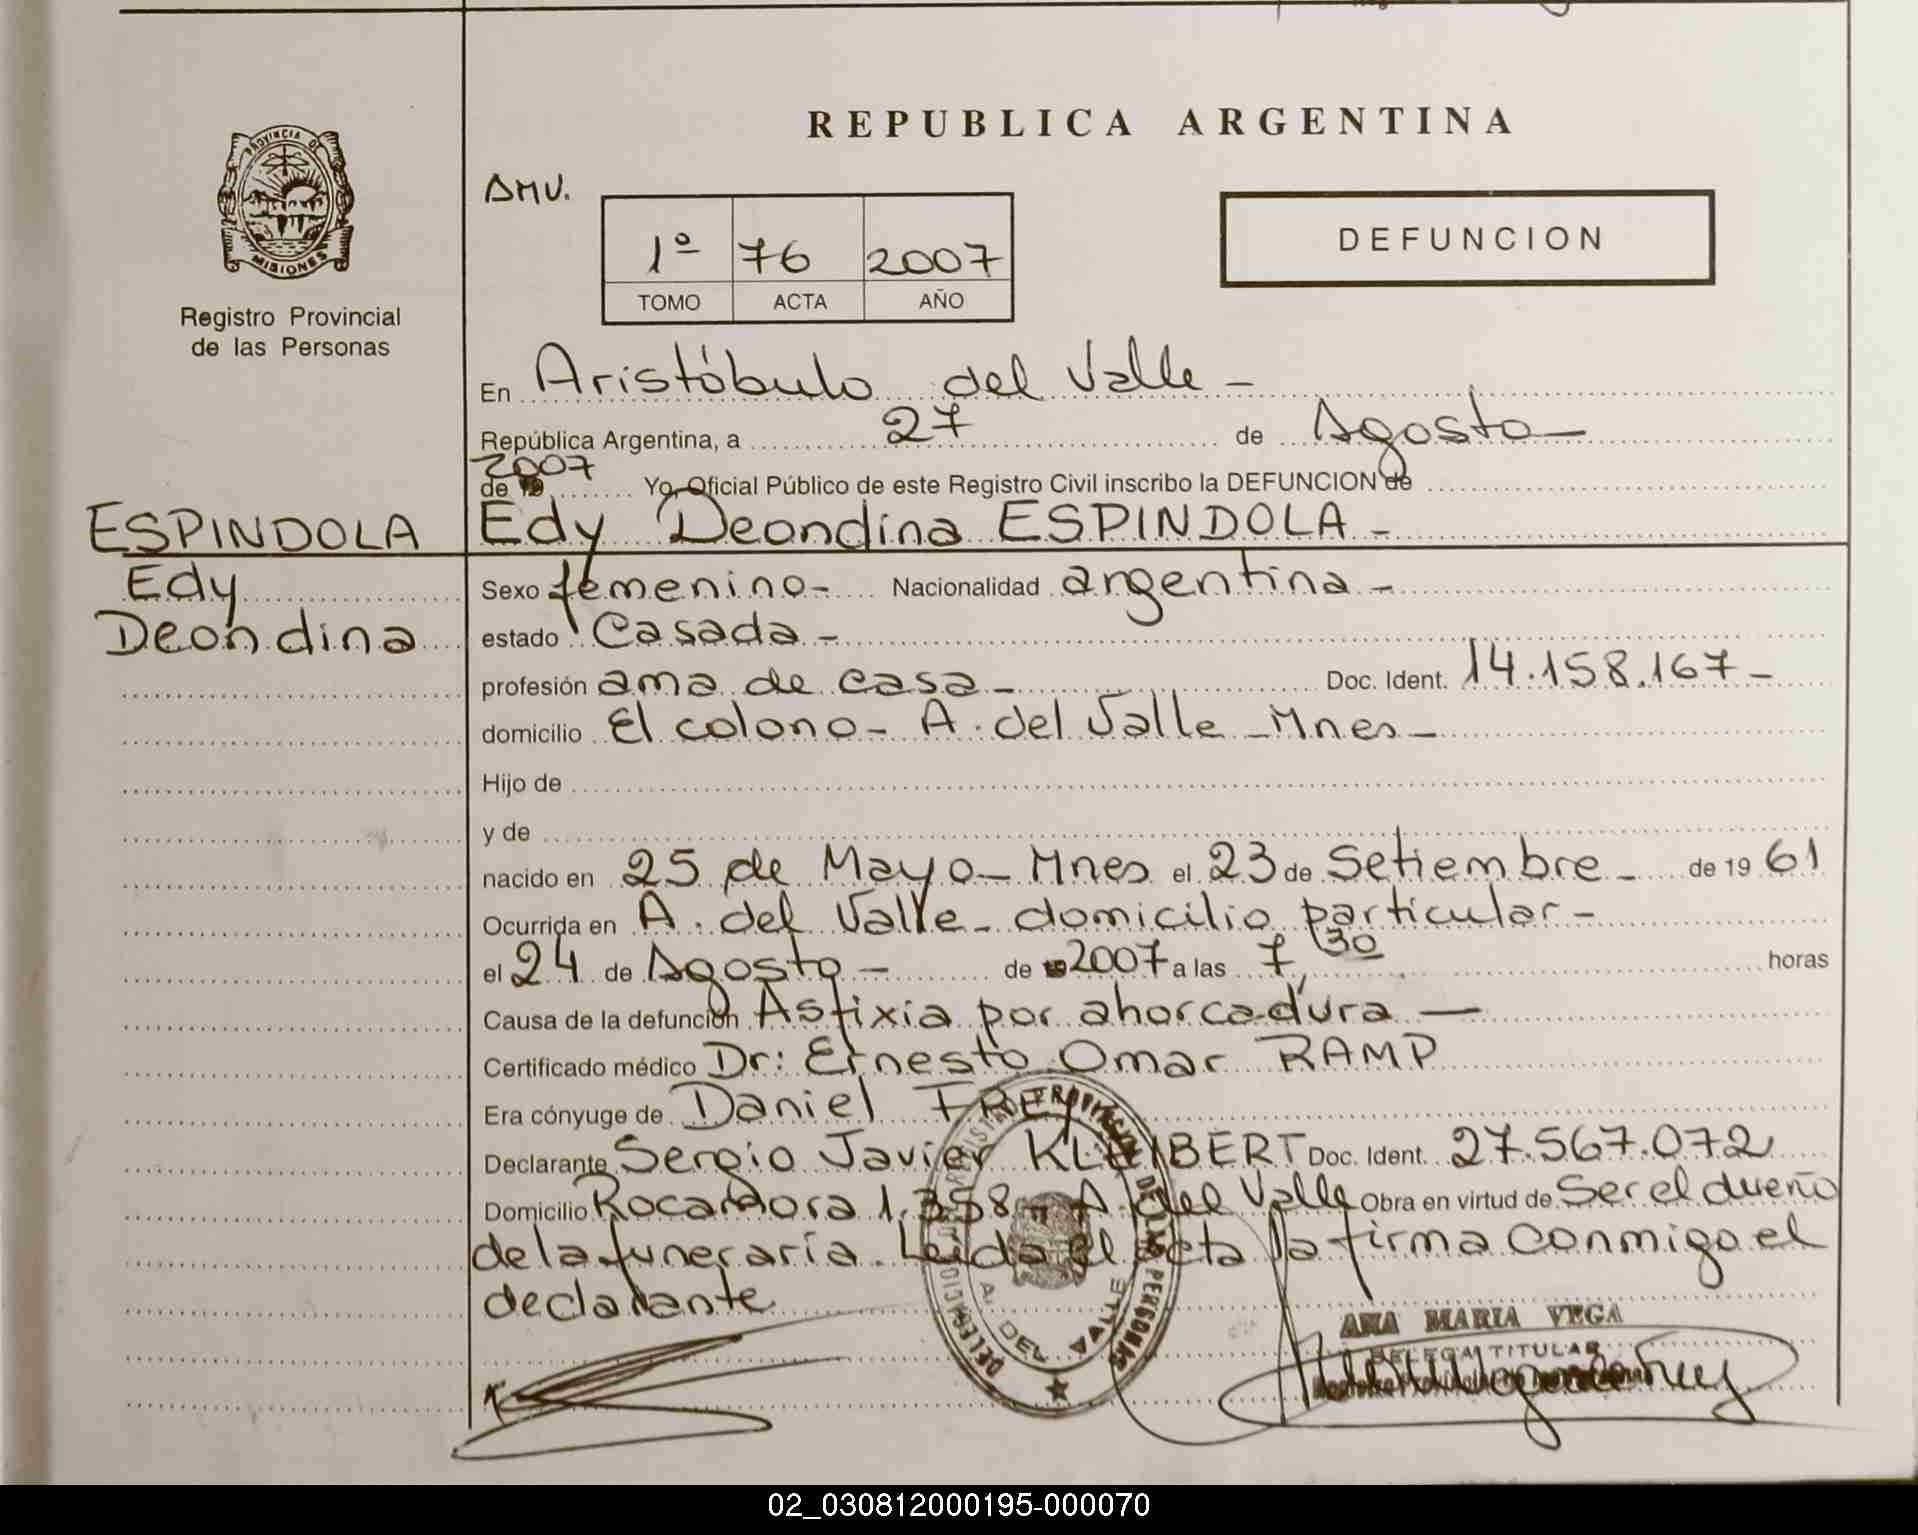 REPUBLICA ARGENTINA
PROVINCIA DE
MISIONES
Registro Provincial
de las Personas
AMV.
1º 76 2007
TOMO ACTA AÑO
DEFUNCION
En Aristóbulo del Valle -
República Argentina, a 27 de Agosto -
2007
de 19 Yo, Oficial Público de este Registro Civil inscribo la DEFUNCION de
ESPINDOLA Edy Deondina ESPINDOLA -
Edy
Deondina
Sexo femenino - Nacionalidad argentina -
estado Casada -
profesión ama de casa - Doc. Ident. 14.158.167 -
domicilio El colono - A. del Valle - Mnes -
Hijo de
y de
nacido en 25 de Mayo - Mnes el 23 de Setiembre - de 19 61
Ocurrida en A. del Valle - domicilio particular -
el 24 de Agosto - de 2007 a las 7,30 horas
Causa de la defunción Asfixia por ahorcadura —
Certificado médico Dr: Ernesto Omar RAMP
Era cónyuge de Daniel FREY
Declarante Sergio Javier KLEIBERT Doc. Ident. 27.567.072
Domicilio Rocamora 1.358 - A. del Valle Obra en virtud de Ser el dueño
de la funeraria. Leida el acta la firma conmigo el
declarante
REGISTRO PROVINCIAL DE LAS PERSONAS
DELEGACION
A. DEL VALLE
ANA MARIA VEGA
DELEGA TITULAR
02_030812000195-000070